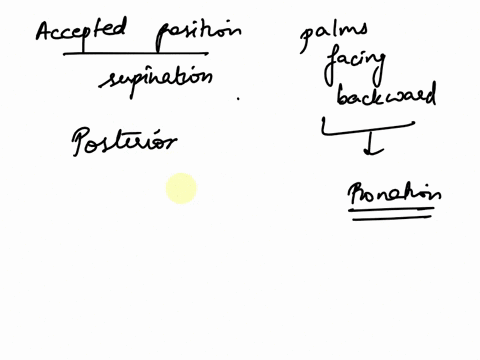 Accepted position
supination
Posterior
palms
facing
backward
Pronation